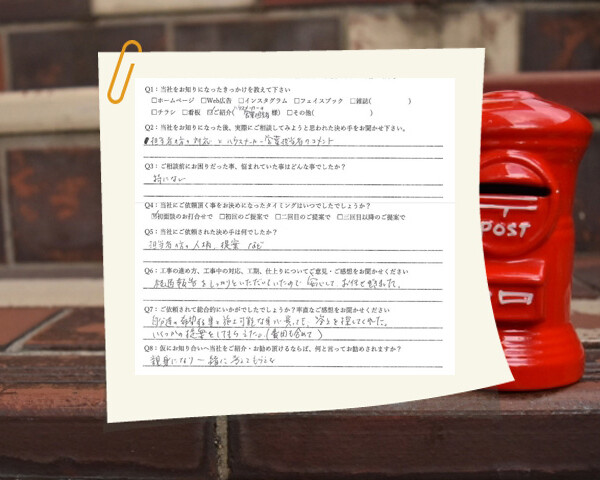 Q1：当社をお知りになったきっかけを教えて下さい
□ホームページ □Web広告 □インスタグラム □フェイスブック □雑誌( )
□チラシ □看板 ☑ご紹介( 営業担当者 様) □その他( )
Q2：当社をお知りになった後、実際にご相談してみようと思われた決め手をお聞かせ下さい。
担当者の方の対応 ハウスメーカー営業担当者のコメント
Q3：ご相談前にお困りだった事、悩まれていた事はどんな事でしたか？
特になし
Q4：当社にご依頼頂く事をお決めになったタイミングはいつでしたでしょうか？
☑初面談のお打合せで □初回のご提案で □二回目のご提案で □三回目以降のご提案で
Q5：当社にご依頼された決め手は何でしたか？
担当者の方の人柄、提案 など
Q6：工事の進め方、工事中の対応、工期、仕上りについてご意見・ご感想をお聞かせください
経過報告をしっかりといただいていたので安心して、お任せできました。
Q7：ご依頼されて総合的にいかがでしたでしょうか？率直なご感想をお聞かせください
自分達の希望 と施工可能な 探してくれた。
いくつかの提案をしてもらえた。(費用も含めて)
Q8：仮にお知り合いへ当社をご紹介・お勧め頂けるならば、何と言ってお勧めされますか？
親身になって一緒に考えてもらえる
POST